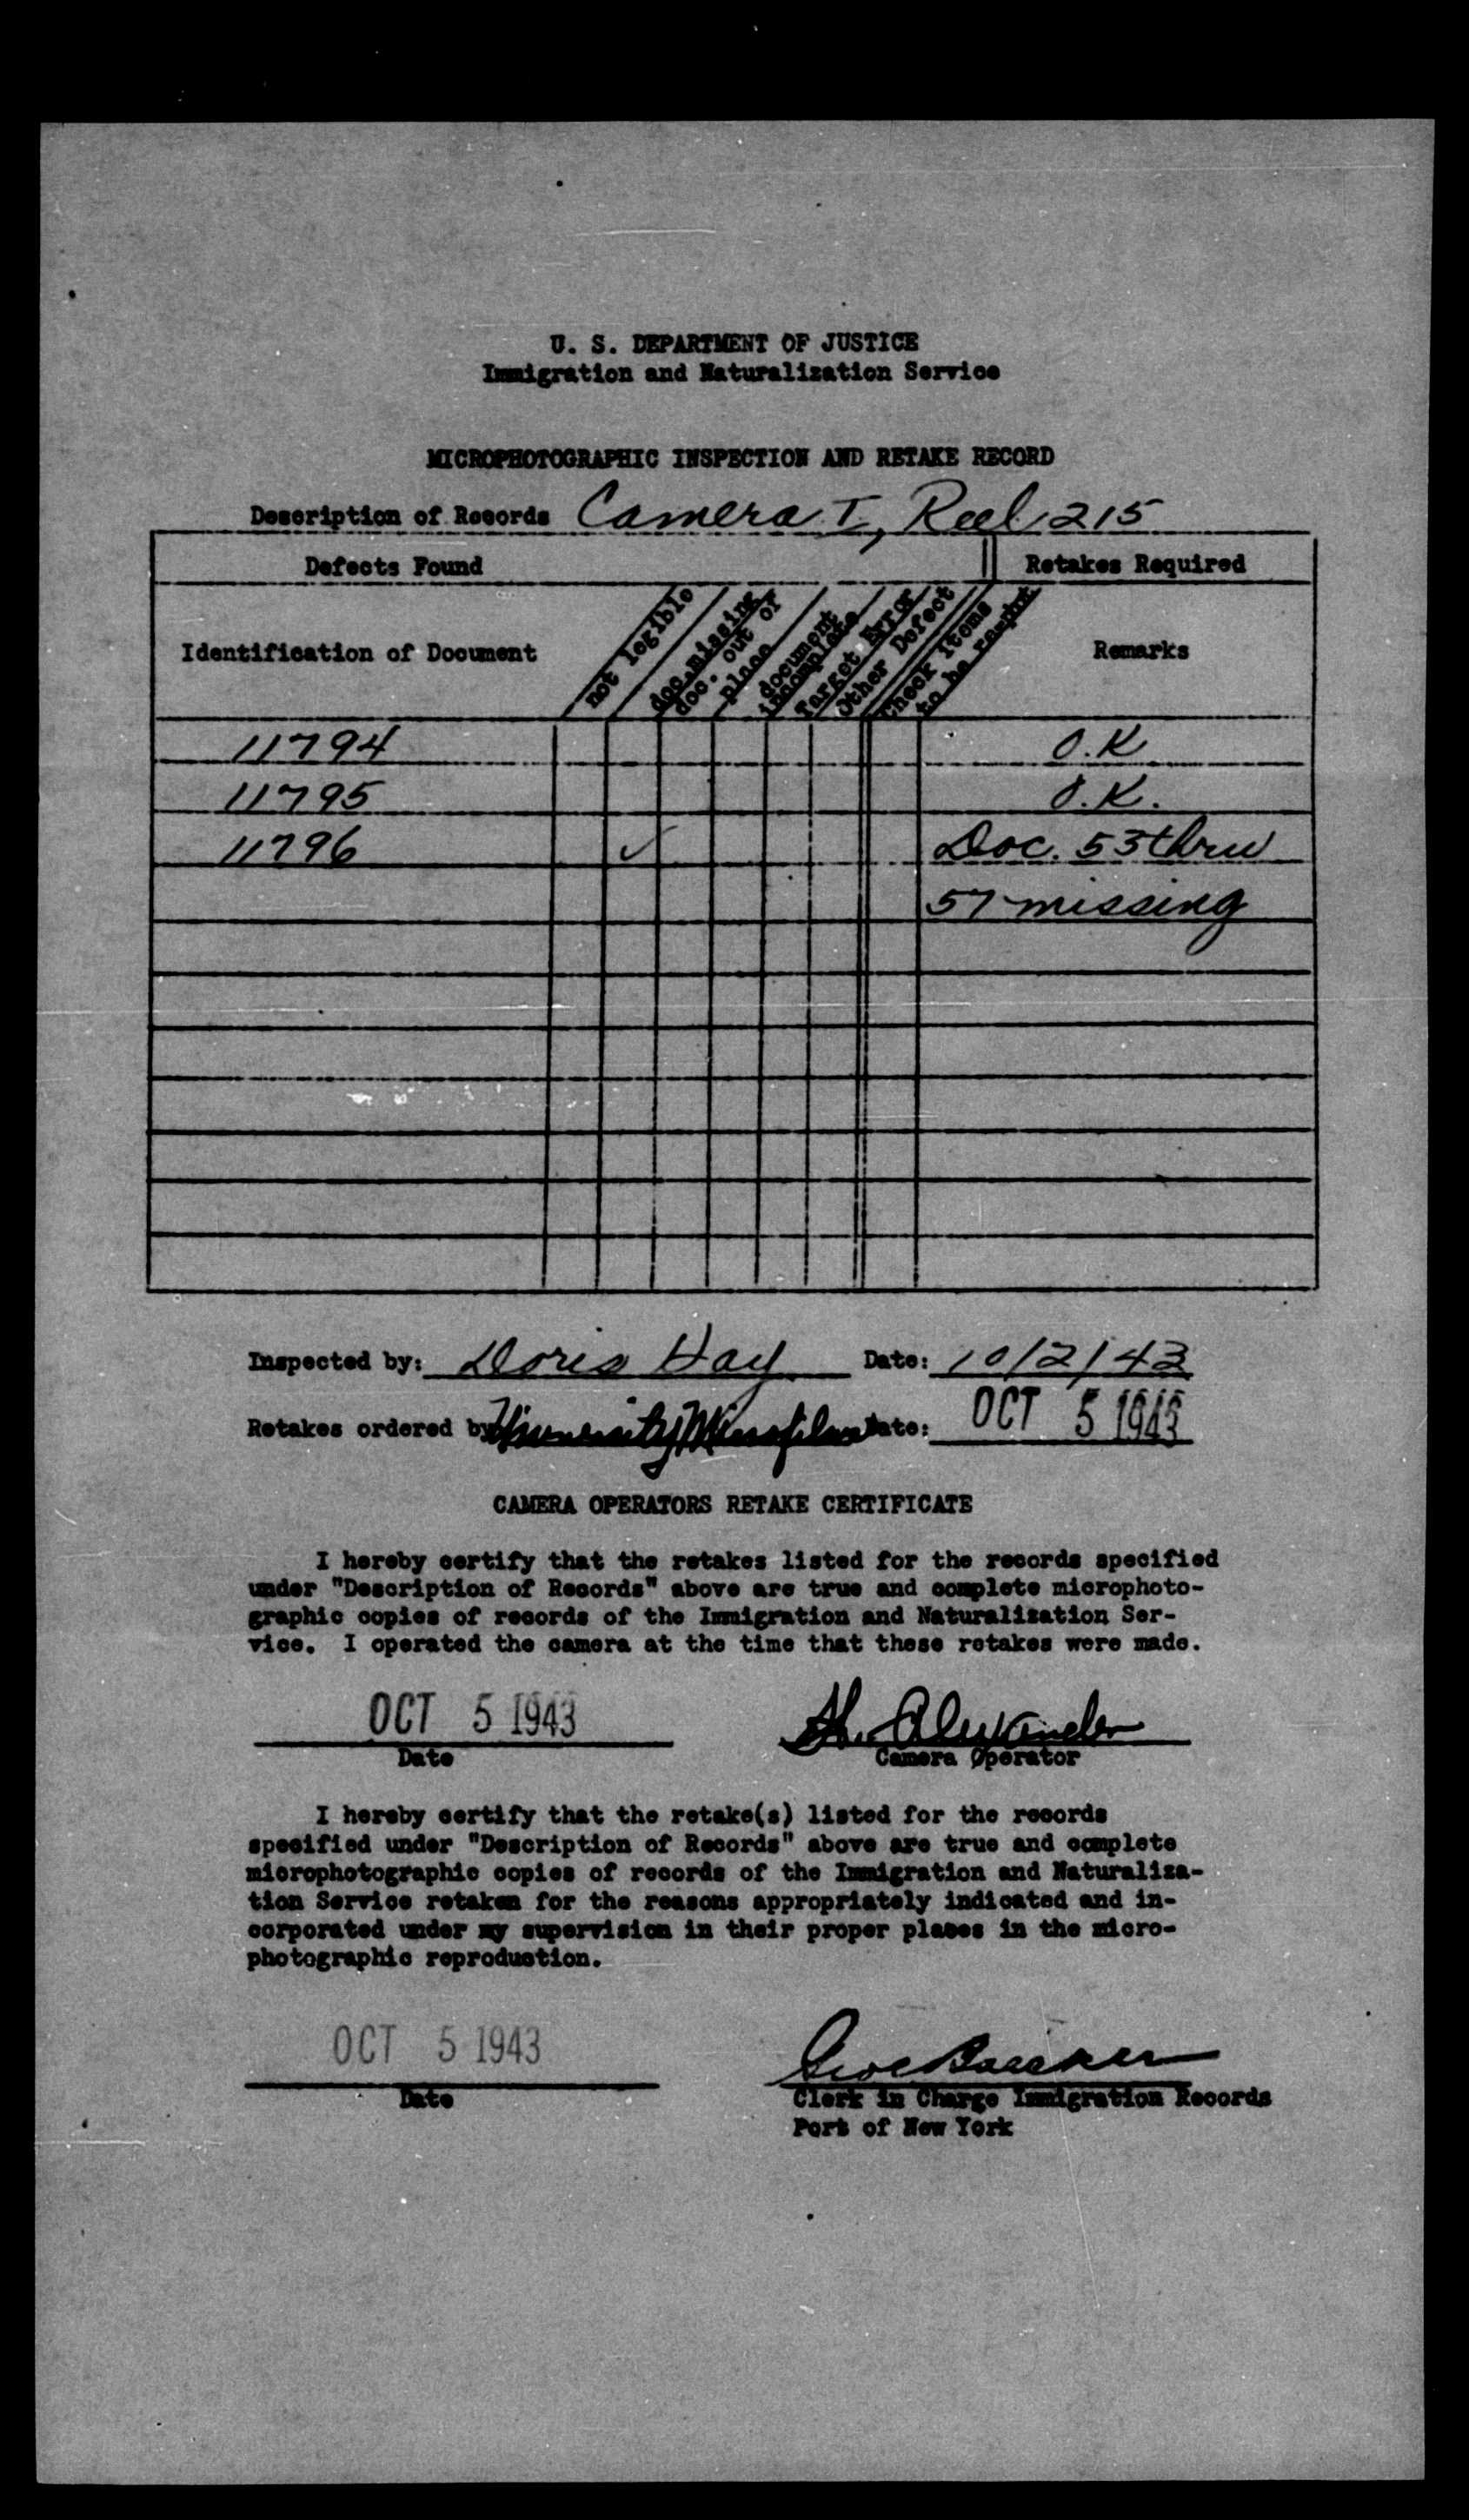 U. S. DEPARTMENT OF JUSTICE
Immigration and Naturalization Service
MICROPHOTOGRAPHIC INSPECTION AND RETAKE RECORD
Description of Records Camera I, Reel 215
Defects Found
Retakes Required
Identification of Document
not legible
doc. missing
doc. out of
place
document
incomplete
Target Error
Other Defect
Check items
to be re-pht
Remarks
11794 O.K
11795 O.K.
11796 ✓ Doc. 53 thru
57 missing
Inspected by: Doris Hay Date: 10/2/43
Retakes ordered by Date: OCT 5 1943
CAMERA OPERATORS RETAKE CERTIFICATE
I hereby certify that the retakes listed for the records specified
under "Description of Records" above are true and complete microphoto-
graphic copies of records of the Immigration and Naturalization Ser-
vice. I operated the camera at the time that these retakes were made.
OCT 5 1943 H. Alexander
Date Camera Operator
I hereby certify that the retake(s) listed for the records
specified under "Description of Records" above are true and complete
microphotographic copies of records of the Immigration and Naturaliza-
tion Service retaken for the reasons appropriately indicated and in-
corporated under my supervision in their proper places in the micro-
photographic reproduction.
OCT 5 1943
Date Clerk in Charge Immigration Records
Port of New York